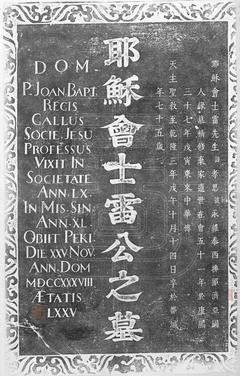 D.O.M.
P. JOAN BAPT.
REGIS
GALLUS
SOCIE. JESU
PROFESSUS
VIXIT IN
SOCIETATE
ANN. LX.
IN MIS. SIN.
ANN. XL.
OBIIT PEKI.
DIE XXV NOV.
ANN. DOM
MDCCXXXVIII
ÆTATIS
LXXV
耶穌會士雷公之墓
耶穌會士雷先生諱孝思號永維泰西郎濟亞國
人緣慕精修棄家遁世在會五十一年於康熙
三十七年戊寅東來中華傳
天主聖教至乾隆三年戊午十月十四日卒於都城
年七十五歲